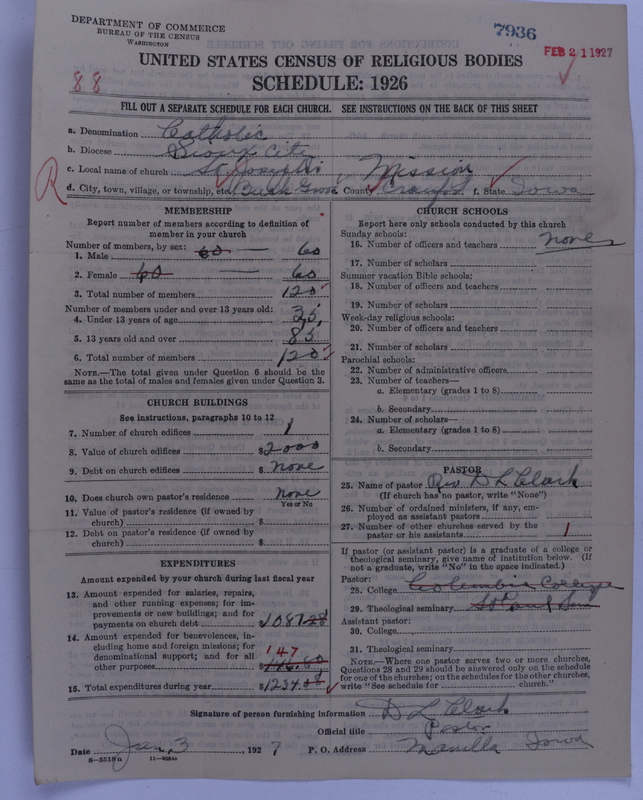 DEPARTMENT OF COMMERCE
BUREAU OF THE CENSUS
WASHINGTON
7936
FEB 21 1927
UNITED STATES CENSUS OF RELIGIOUS BODIES
SCHEDULE: 1926
88
FILL OUT A SEPARATE SCHEDULE FOR EACH CHURCH. SEE INSTRUCTIONS ON THE BACK OF THIS SHEET
a. Denomination Catholic
b. Diocese Sioux City
c. Local name of church St Joseph's Mission
R
d. City, town, village, or township, etc. Buck Grove County Crawford f. State Iowa
MEMBERSHIP
Report number of members according to definition of
member in your church
Number of members, by sex:
1. Male 60 60
2. Female 60 60
3. Total number of members 120
Number of members under and over 13 years old:
4. Under 13 years of age 35
5. 13 years old and over 85
6. Total number of members 120
NOTE.—The total given under Question 6 should be the
same as the total of males and females given under Question 3.
CHURCH BUILDINGS
See instructions, paragraphs 10 to 12
7. Number of church edifices 1
8. Value of church edifices $2000
9. Debt on church edifices $ none
10. Does church own pastor's residence none
Yes or No
11. Value of pastor's residence (if owned by
church) $
12. Debt on pastor's residence (if owned by
church) $
EXPENDITURES
Amount expended by your church during last fiscal year
13. Amount expended for salaries, repairs,
and other running expenses; for im-
provements or new buildings; and for
payments on church debt $1087.28
14. Amount expended for benevolences, in-
cluding home and foreign missions; for
denominational support; and for all
other purposes $146.80
147
15. Total expenditures during year $1234.08
CHURCH SCHOOLS
Report here only schools conducted by this church
Sunday schools:
16. Number of officers and teachers none
17. Number of scholars
Summer vacation Bible schools:
18. Number of officers and teachers
19. Number of scholars
Week-day religious schools:
20. Number of officers and teachers
21. Number of scholars
Parochial schools:
22. Number of administrative officers
23. Number of teachers—
a. Elementary (grades 1 to 8)
b. Secondary
24. Number of scholars—
a. Elementary (grades 1 to 8)
b. Secondary
PASTOR
25. Name of pastor Rev D L Clark
(If church has no pastor, write "None")
26. Number of ordained ministers, if any, em-
ployed as assistant pastors
27. Number of other churches served by the
pastor or his assistants 1
If pastor (or assistant pastor) is a graduate of a college or
theological seminary, give name of institution below. (If
not a graduate, write "No" in the space indicated.)
Pastor:
28. College Columbia College
29. Theological seminary St Paul Sem
Assistant pastor:
30. College
31. Theological seminary
NOTE.—Where one pastor serves two or more churches,
Questions 28 and 29 should be answered only on the schedule
for one of the churches; on the schedules for the other churches,
write "See schedule for church."
Signature of person furnishing information D L Clark
Official title Pastor
Date Jan, 3 1927 P. O. Address Manilla Iowa